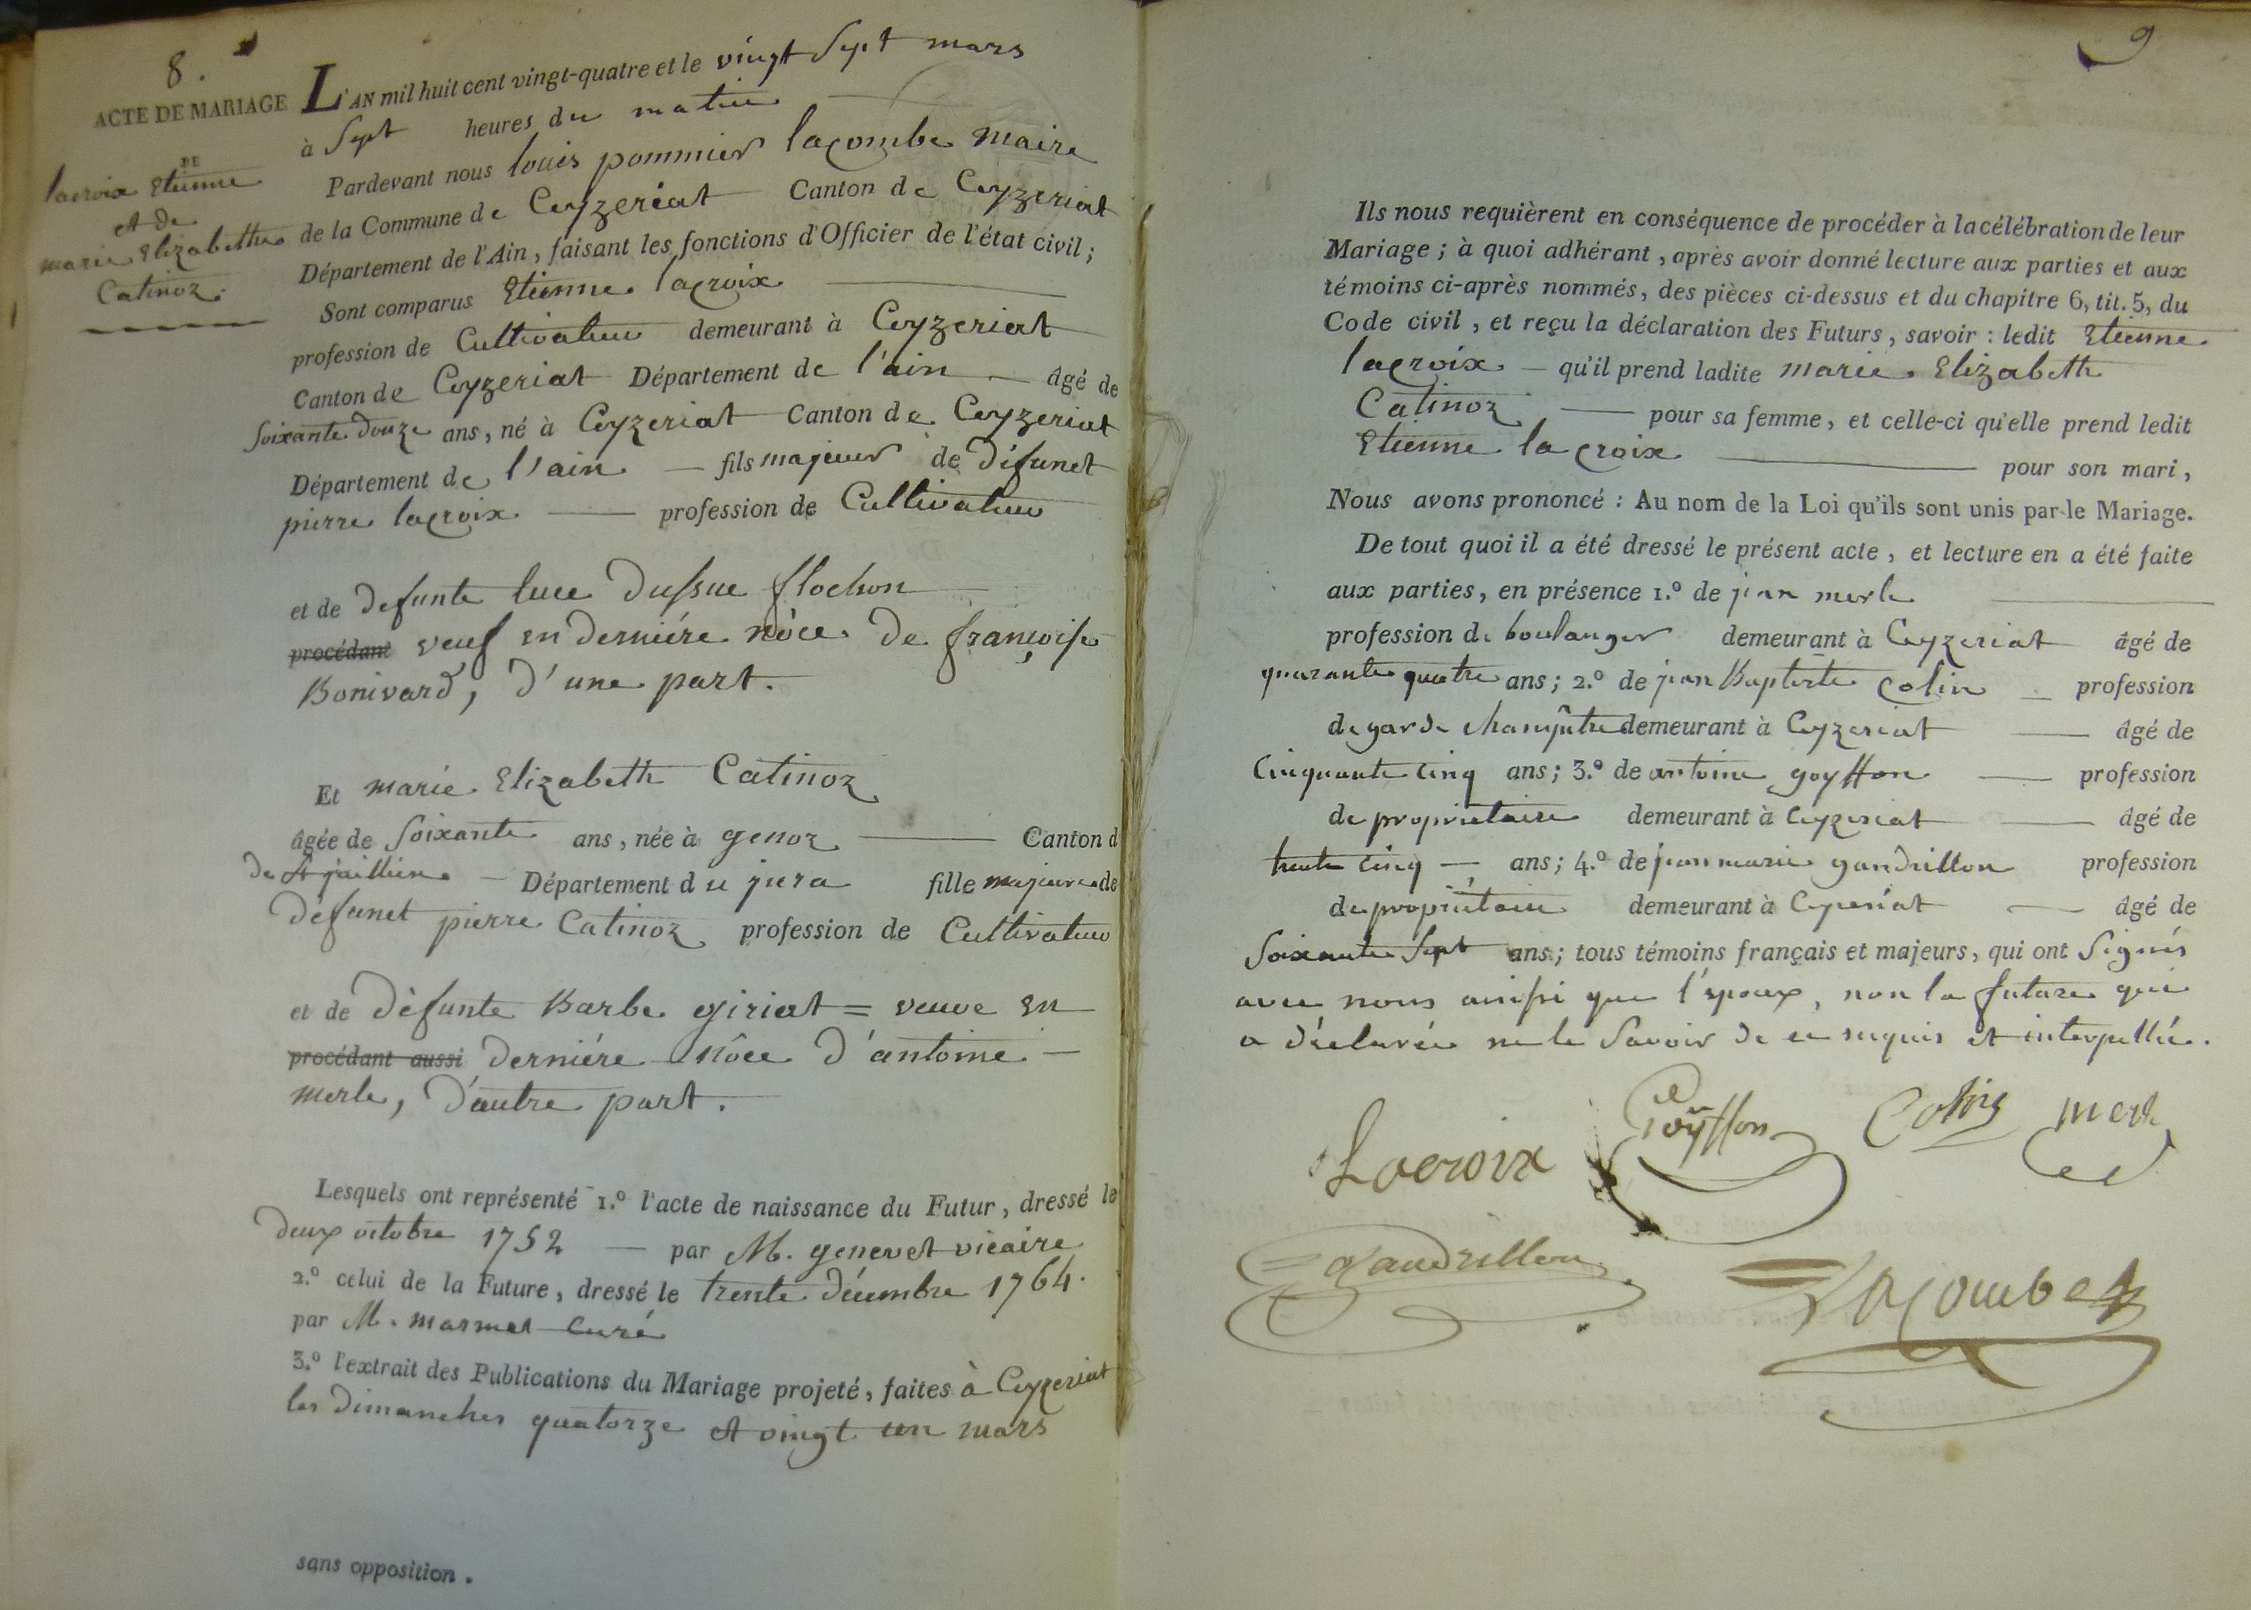 8.
ACTE DE MARIAGE
DE
lacroix Etienne
et de
marie Elizabeth
Catinoz.
L'AN mil huit cent vingt-quatre et le vingt sept mars
à Sept heures du matin
Pardevant nous louis pommier lacombe maire
de la Commune de Ceyzeriat Canton de Ceyzeriat
Département de l'Ain, faisant les fonctions d'Officier de l'état civil;
Sont comparus Etienne lacroix
profession de Cultivateur demeurant à Ceyzeriat
Canton de Ceyzeriat Département de l'ain âgé de
soixante douze ans, né à Ceyzeriat Canton de Ceyzeriat
Département de l'ain fils majeur de défunct
pierre lacroix profession de Cultivateur
et de defunte luce Dussue flochon
procédant veuf en derniére nôce de françoise
Bonivard, d'une part.
Et marie Elizabeth Catinoz
âgée de Soixante ans, née à genoz Canton d
de St jullien Département du jura fille majeure de
défunct pierre Catinoz profession de Cultivateur
et de défunte Barbe giriat = veuve en
procédant aussi derniére nôce d'antoine
merle, d'autre part.
Lesquels ont représenté 1.º l'acte de naissance du Futur, dressé le
deux octobre 1752 par M. genevet vicaire
2.º celui de la Future, dressé le trente décembre 1764.
par M. marmet curé
3.º l'extrait des Publications du Mariage projeté, faites à Ceyzeriat
les dimanches quatorze et vingt un mars
sans opposition.
9
Ils nous requièrent en conséquence de procéder à la célébration de leur
Mariage; à quoi adhérant, après avoir donné lecture aux parties et aux
témoins ci-après nommés, des pièces ci-dessus et du chapitre 6, tit. 5, du
Code civil, et reçu la déclaration des Futurs, savoir: ledit Etienne
lacroix qu'il prend ladite marie Elizabeth
Catinoz pour sa femme, et celle-ci qu'elle prend ledit
Etienne la croix pour son mari,
Nous avons prononcé: Au nom de la Loi qu'ils sont unis par le Mariage.
De tout quoi il a été dressé le présent acte, et lecture en a été faite
aux parties, en présence 1.º de jean merle
profession de boulanger demeurant à Ceyzeriat âgé de
quarante quatre ans; 2.º de jean Baptiste Colin profession
de garde champêtre demeurant à Ceyzeriat âgé de
Cinquante cinq ans; 3.º de antoine goyffon profession
de proprietaire demeurant à Ceyzeriat âgé de
trente cinq ans; 4.º de jean marie gandrillon profession
de propriétaire demeurant à Ceyzeriat âgé de
Soixante Sept ans; tous témoins français et majeurs, qui ont Signés
avec nous ainssi que l'epoux, non la future qui
a déclarée ne le Savoir de ce requis et interpellée.
Lacroix Goÿffon Colin merle
gandrillon Lacombe